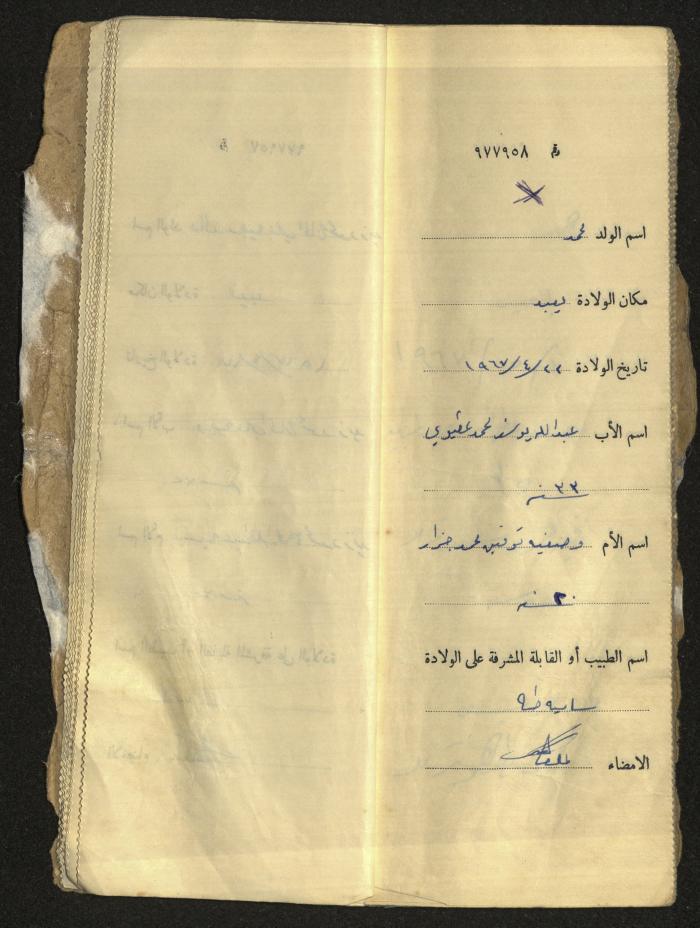 رقم ٩٧٧٩٥٨
اسم الولد محمد
مكان الولادة يعبد
تاريخ الولادة ٢٢/٤/١٩٦٧
اسم الأب عبدالله يوسف محمد
٣٣ سنه
اسم الأم وصفيه توفيق محمد جرار
٢٠ سنه
اسم الطبيب أو القابلة المشرفة على الولادة
ساميه طه
الامضاء